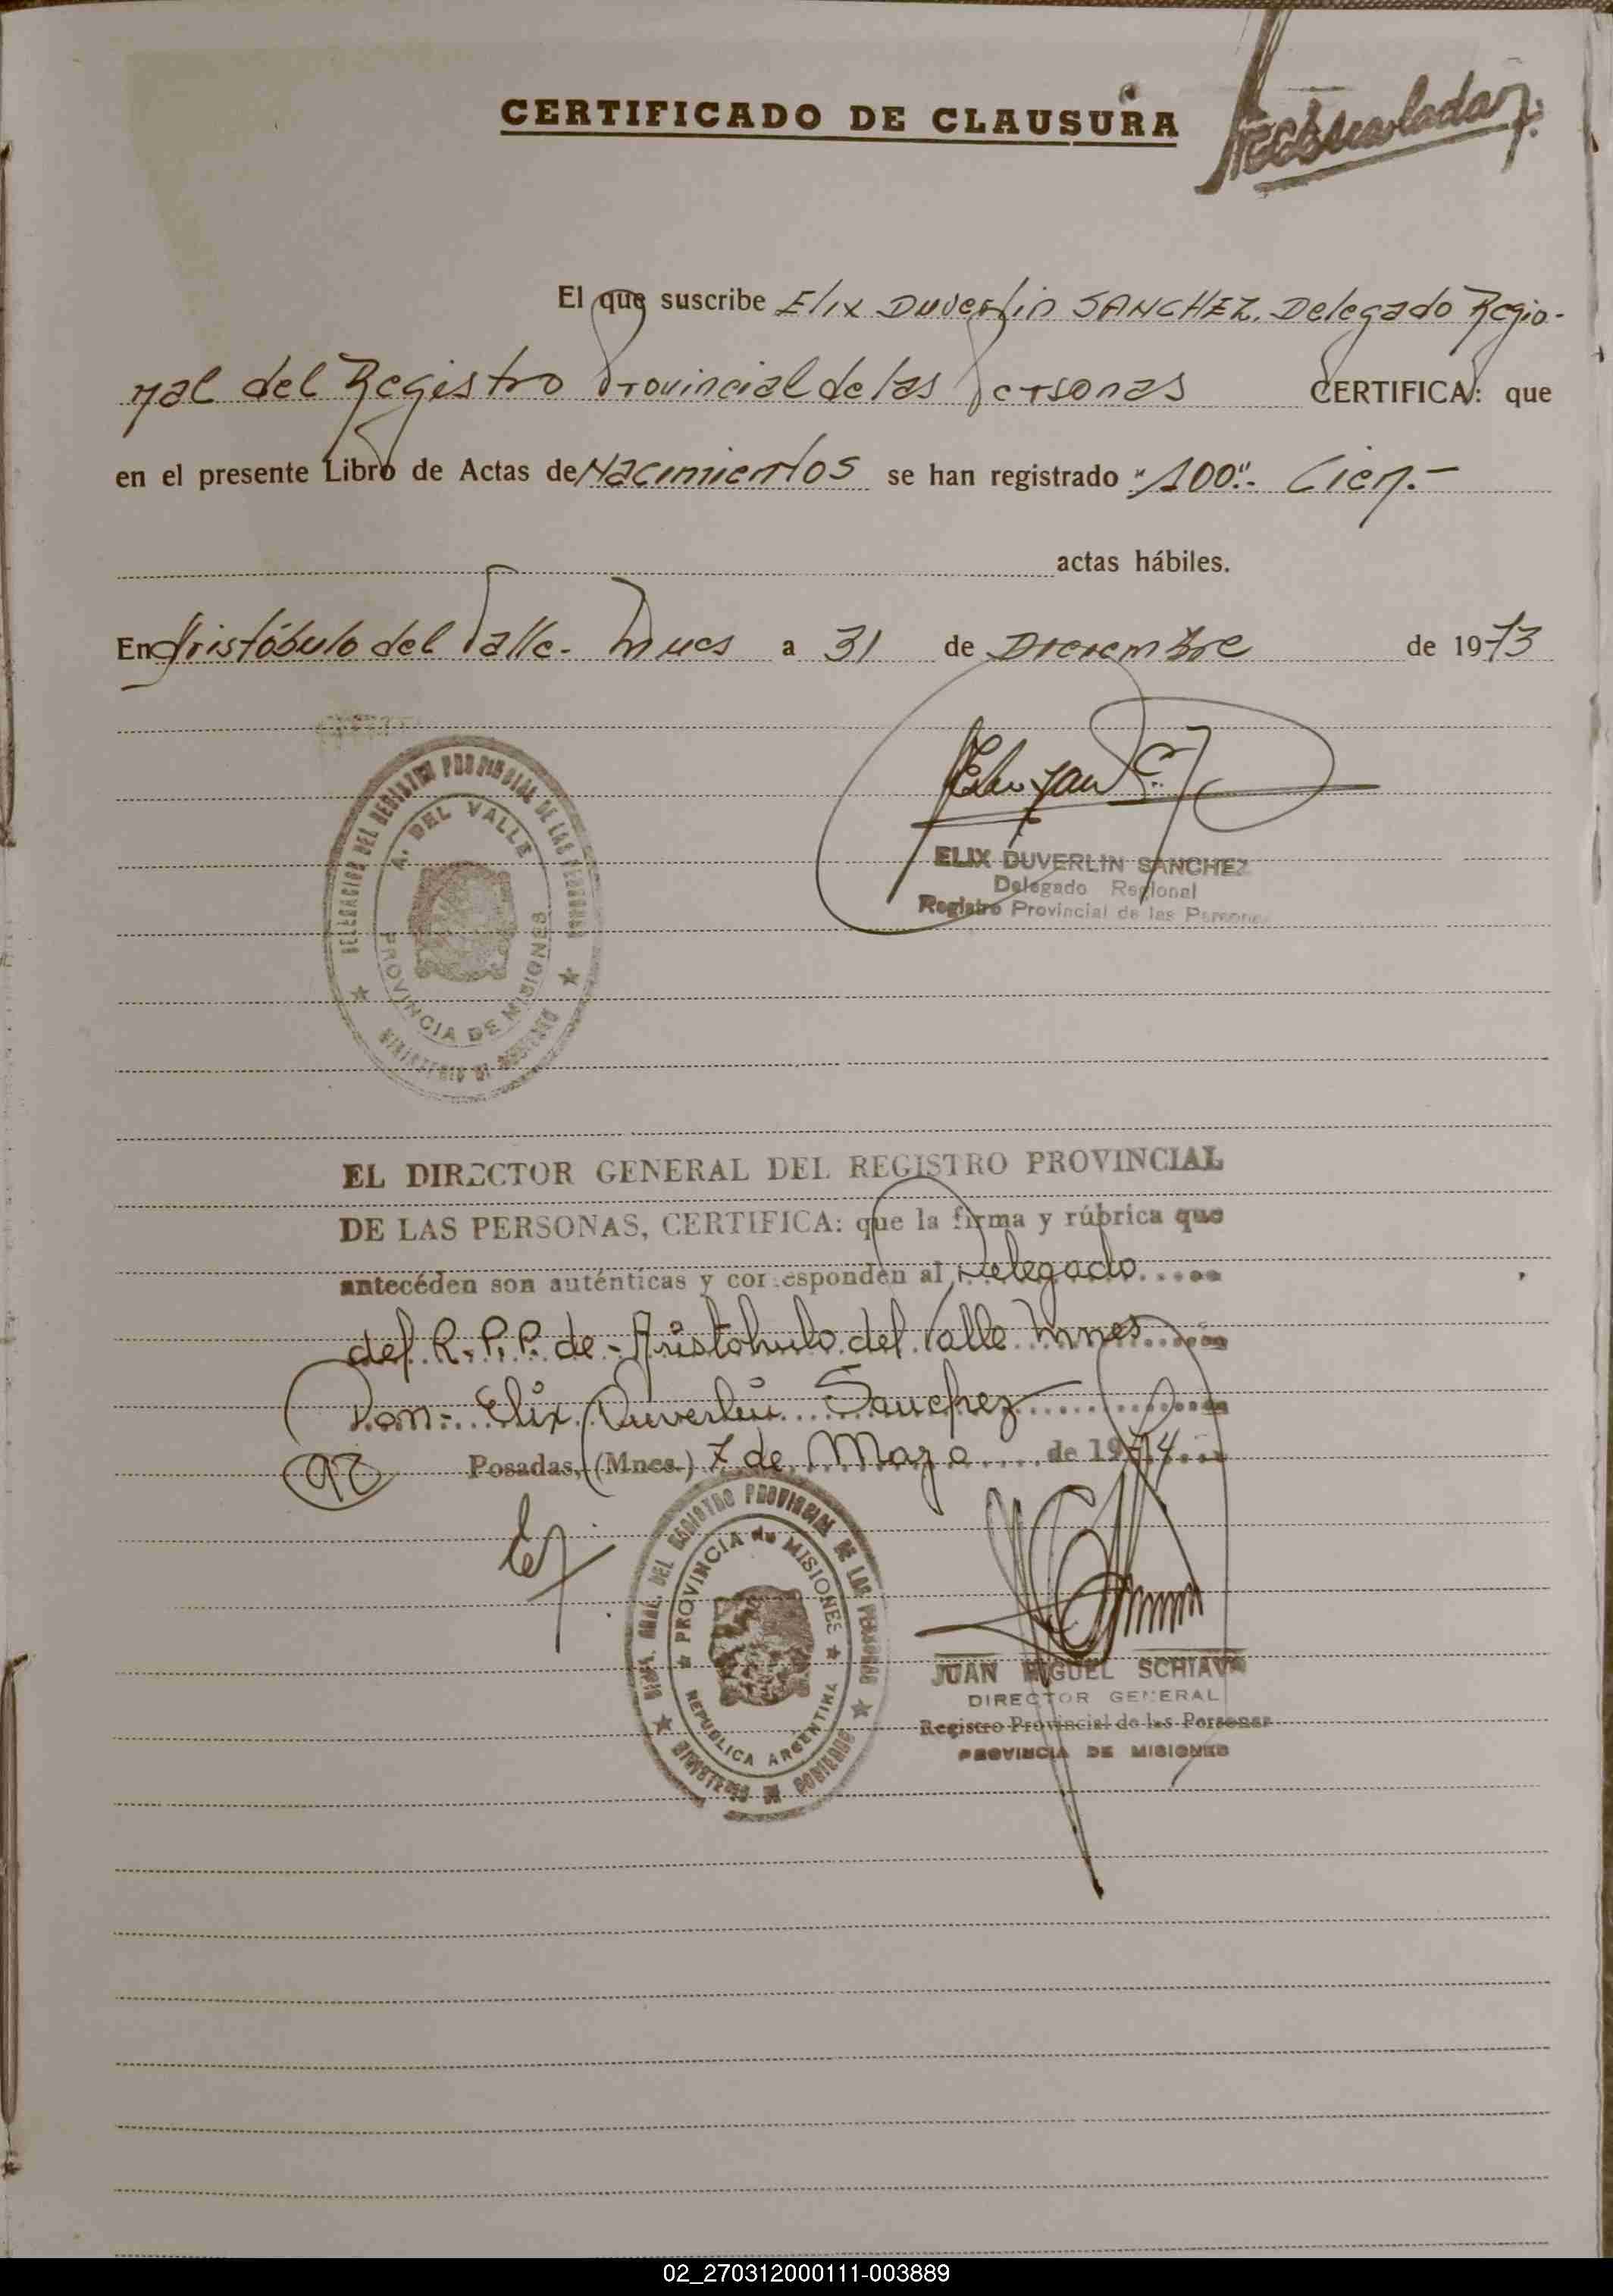 CERTIFICADO DE CLAUSURA
El que suscribe Elix Duverlin SANCHEZ. Delegado Regio-
nal del Registro Provincial de las Personas CERTIFICA: que
en el presente Libro de Actas de Nacimientos se han registrado "100".- Cien.-
actas hábiles.
En Aristóbulo del Valle. Mnes a 31 de Diciembre de 1973
DELEGACION DEL REGISTRO PROVINCIAL DE LAS PERSONAS
A. DEL VALLE
PROVINCIA DE MISIONES
MINISTERIO DE GOBIERNO
ELIX DUVERLIN SANCHEZ
Delegado Regional
Registro Provincial de las Personas
EL DIRECTOR GENERAL DEL REGISTRO PROVINCIAL
DE LAS PERSONAS, CERTIFICA: que la firma y rúbrica que
antecéden son auténticas y corresponden al Delegado
del R.P.P. de - Aristobulo del Valle Mnes
Don- Elix Duverlin Sanchez
Posadas, (Mnes.) 7 de Mayo de 1974
DEL REGISTRO PROVINCIAL DE LAS PERSONAS
PROVINCIA de MISIONES
REPUBLICA ARGENTINA
MINISTERIO DE GOBIERNO
JUAN MIGUEL SCHIAVA
DIRECTOR GENERAL
Registro Provincial de las Personas
PROVINCIA DE MISIONES
02_270312000111-003889